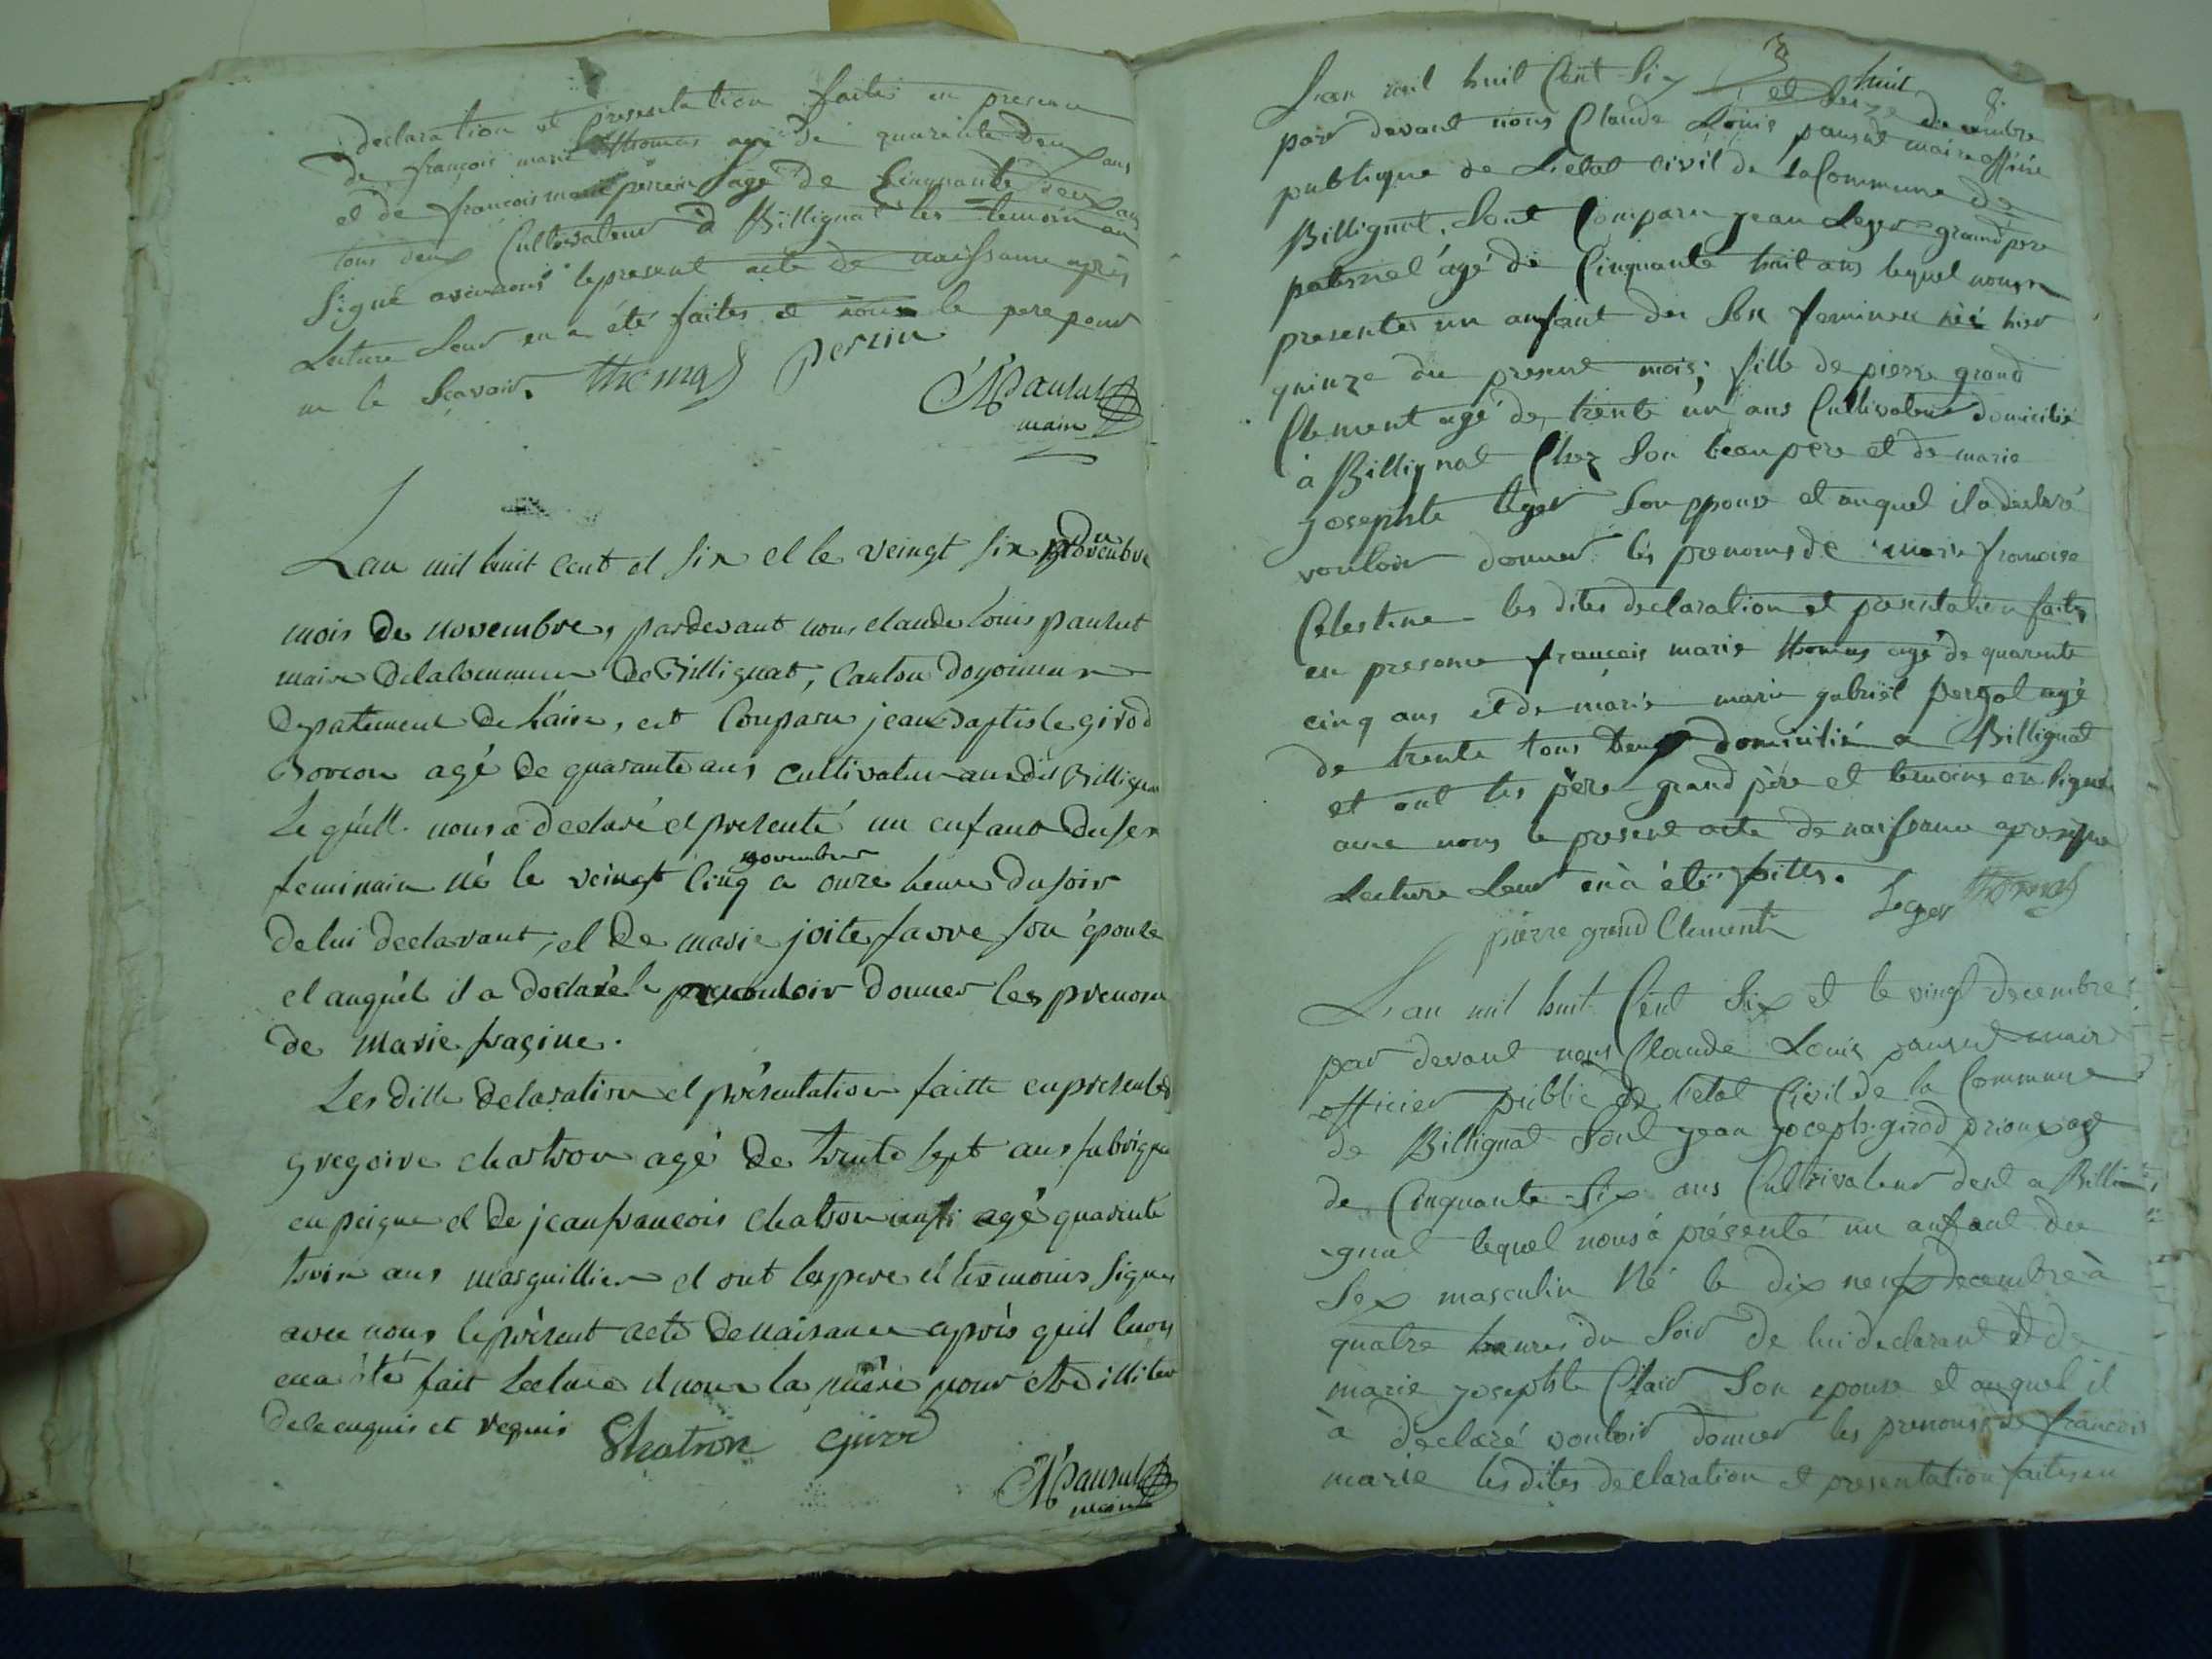 declaration et presentation faites en presence
de françois marie thomas agé de quarente deux ans
et de françois marie perrin agé de Cinquante deux ans
tous deux Cultivateur à Billignat les temoin ont
Signé avec nous le present acte de naissance après
Lecture Leur en a été faites et non le pere pour
ne le Sçavoir. thomas perrin
Pansut
maire
Lan mil huit cent et six et le veingt six du
mois de novembre, pardevant nous claude Louis pansut
maire delacommune de Billignat, Canton doyonnax
depatement de Lain, est Comparu jean baptiste girod
agé de quarante ans cultivateur audit Billignat
Lequell nous a declaré et presenté un enfant du sex
feminain né le veingt Cinq novembre a onze heure du soir
de lui declarant, et de marie joite favre son épouse
et auquel il a declaré vouloir donner les prenom
de marie fragine.
Les ditte declaration et présentation faitte en presente de
gregoire chatron agé de trente sept ans fabriquan
en peigne et de jean francois chatron aussi agé quarente
trois ans marguillier et ont le pere et temoins signes
avec nous le présent acte de naisance après quil leurs
en a été fait Lecture et non la mère pour etre illiter
de le enquis et requis Chatron Girod
Pansut
maire
3
8.
L'an mil huit Cent Six et le seize décembre
huit
par devant nous Claude Louis pansut maire officier
publique de L'etat civil de la Commune de
Billignat. Sont Comparu jean Leger grand pere
paternel agé de Cinquante huit ans lequel nous a
presentés un anfant du Sex feminin né hier
quinze du present mois; fille de pierre grand
Clement agé de trente un ans Cultivateur domicilié
à Billignat Chez Son beau père et de marie
Josephte léger Son epouse et auquel il a declaré
vouloir donner les prenoms de marie francoise
Celestine les dites declaration et presentation faites
en presence françois marie thomas agé de quarente
cinq ans et de marie marie gabriel agé
de trente tous deux domicilié a Billignat
et ont les père grand père et temoins en Signé
avec nous le present acte de naissance après que
Lecture Leur en à été faittes. Leger thomas
pierre grand Clement
L'an mil huit Cent Six et le vingt decembre
par devant nous Claude Louis pansut maire
officier public de l'etat Civil de la Commune
de Billignat Sont jean joceph girod prioux agé
de Cinquante-Six ans Cultivateur demt a Billi-
gnat lequel nous à présenté un anfant du
Sex masculin Né le dix neuf decembre à
quatre heures du Soir de lui declarant et de
marie josephte Clair Son epouse et auquel il
à declaré vouloir donner les prenoms de francois
marie les dites declaration et presentation faites en